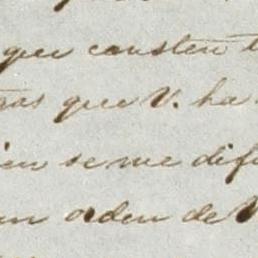 que consten t
ras que V. ha
ien se me dif
un orden de V